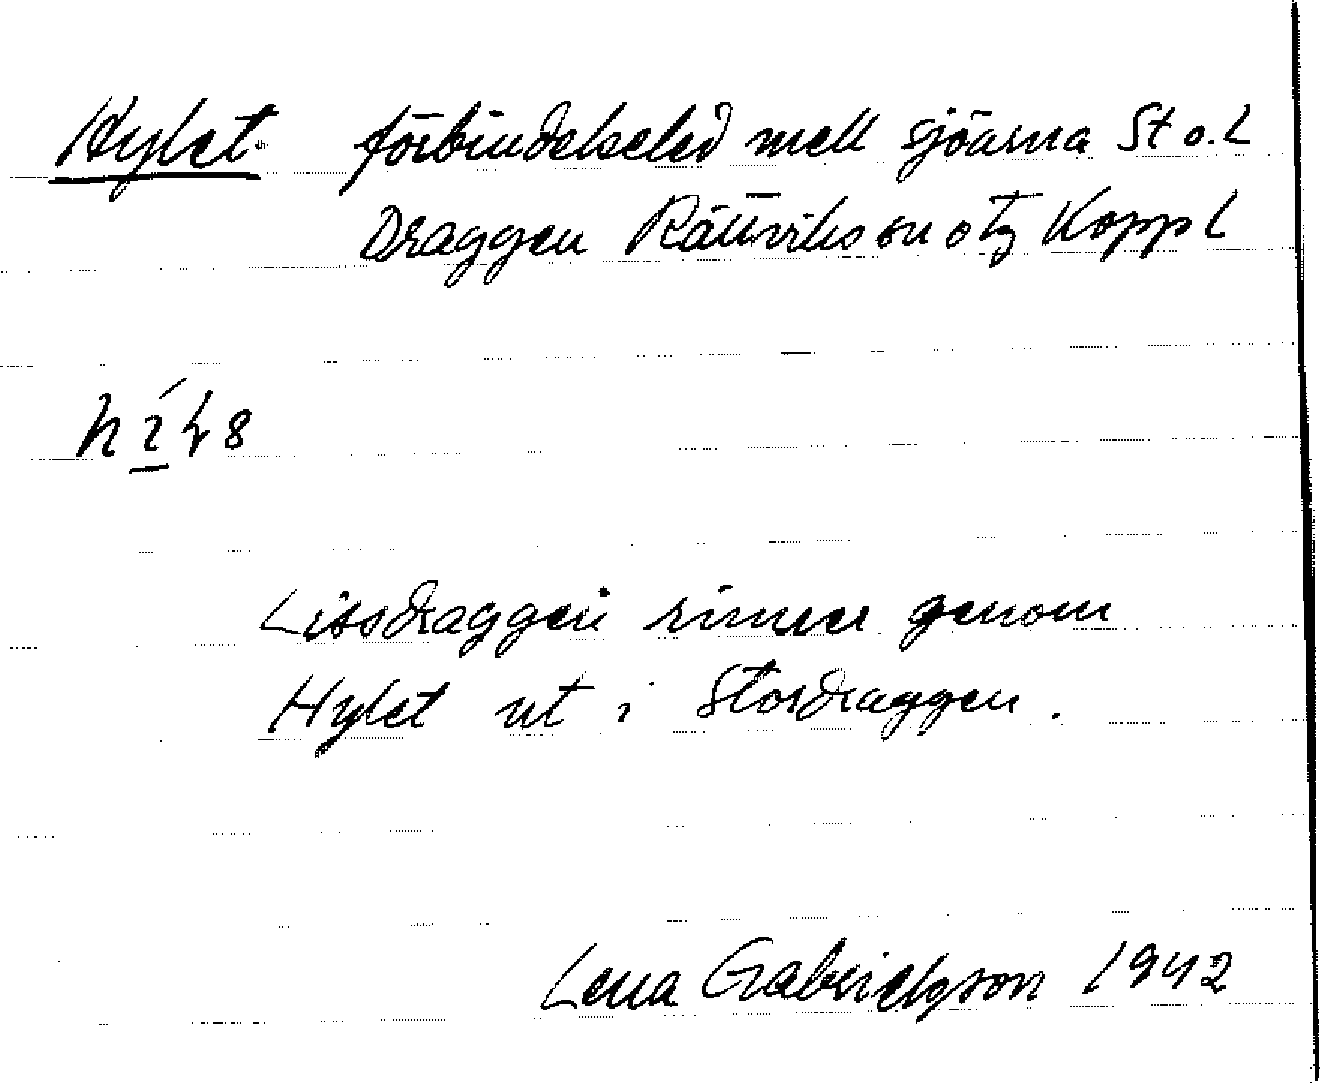 Hylet förbindelseled mell sjöarna St o. L
Draggen Rättviks sn o tg Kopp L
Lissdraggen rinner genom
Hylet ut i Stordraggen.
Lena Gabrielsson 1942